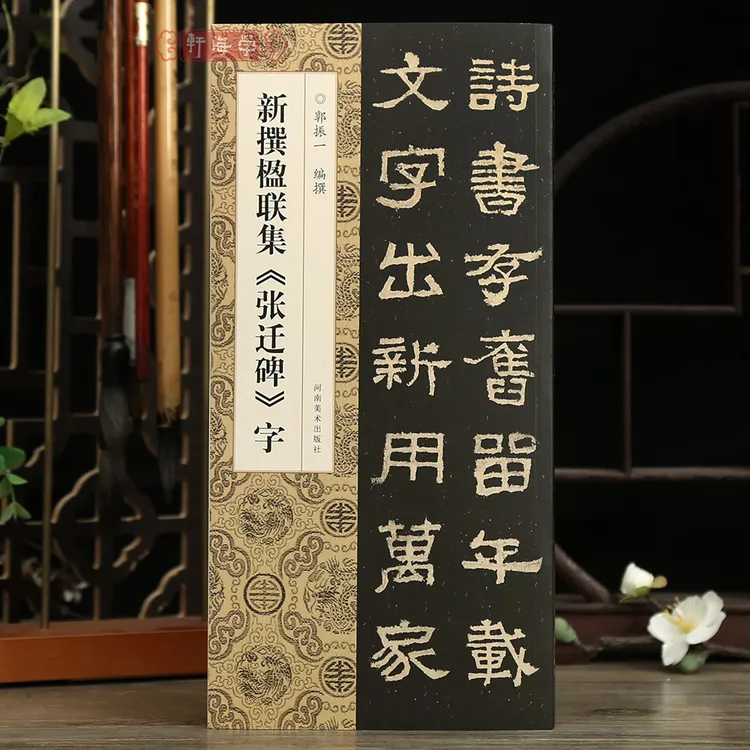 学海軒
詩書存舊留年載
文字出新用萬家
◎郭振一 编撰
新撰楹联集《张迁碑》字
河南美术出版社